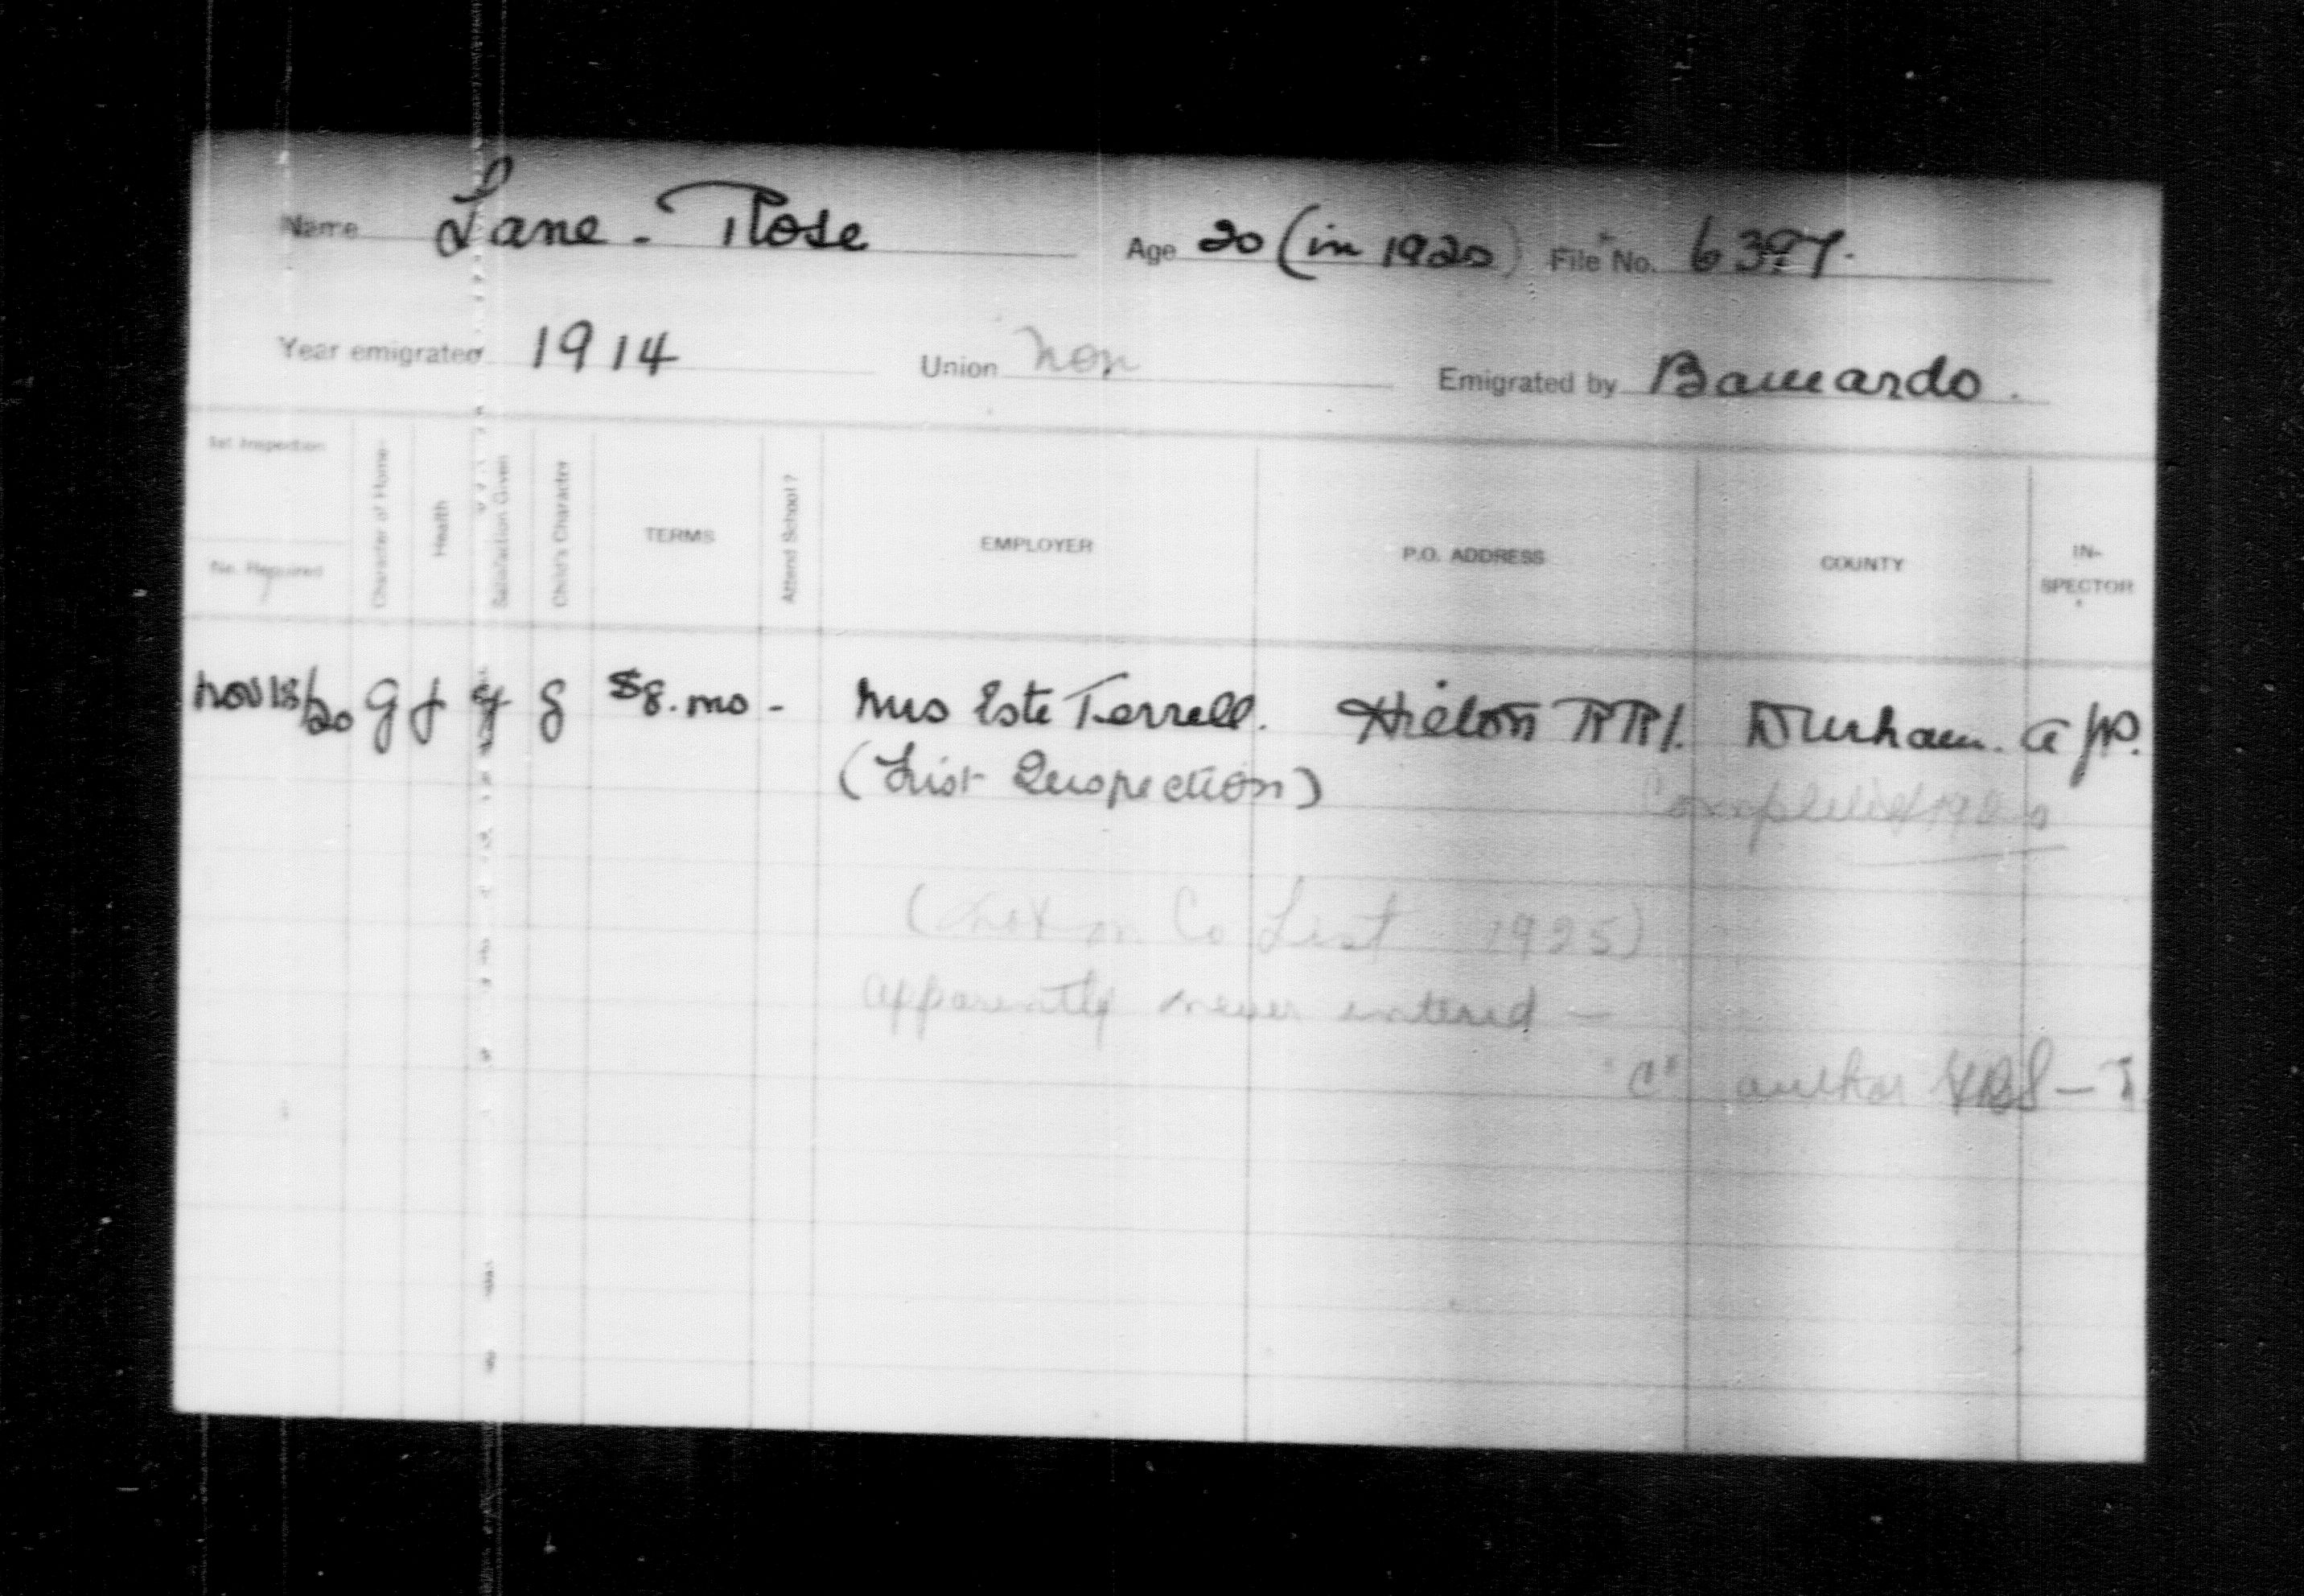 Name Lane - Rose Age 20 (in 1920) File No. 6397.
Year emigrated 1914 Union Non Emigrated by Barnardo.
1st Inspection
No. Required
Character of Home
Health
Satisfaction Given
Child's Character
TERMS
Attend School?
EMPLOYER
P.O. ADDRESS
COUNTY
IN-
SPECTOR
Nov 18/20 g g g $8. mo - Mrs Este Terrell. RR1. Durham.
(First Inspection)
Completed 1920
(Not on Co List 1925)
apparently never entered -
"C"